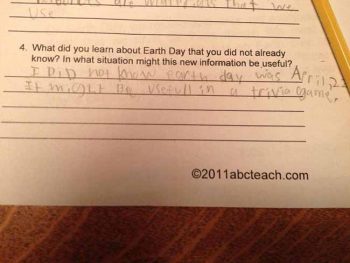 resources are materials that we
use
4. What did you learn about Earth Day that you did not already
know? In what situation might this new information be useful?
I DiD not know earth day was April, 22
It might be usefull in a trivia game.
©2011abcteach.com